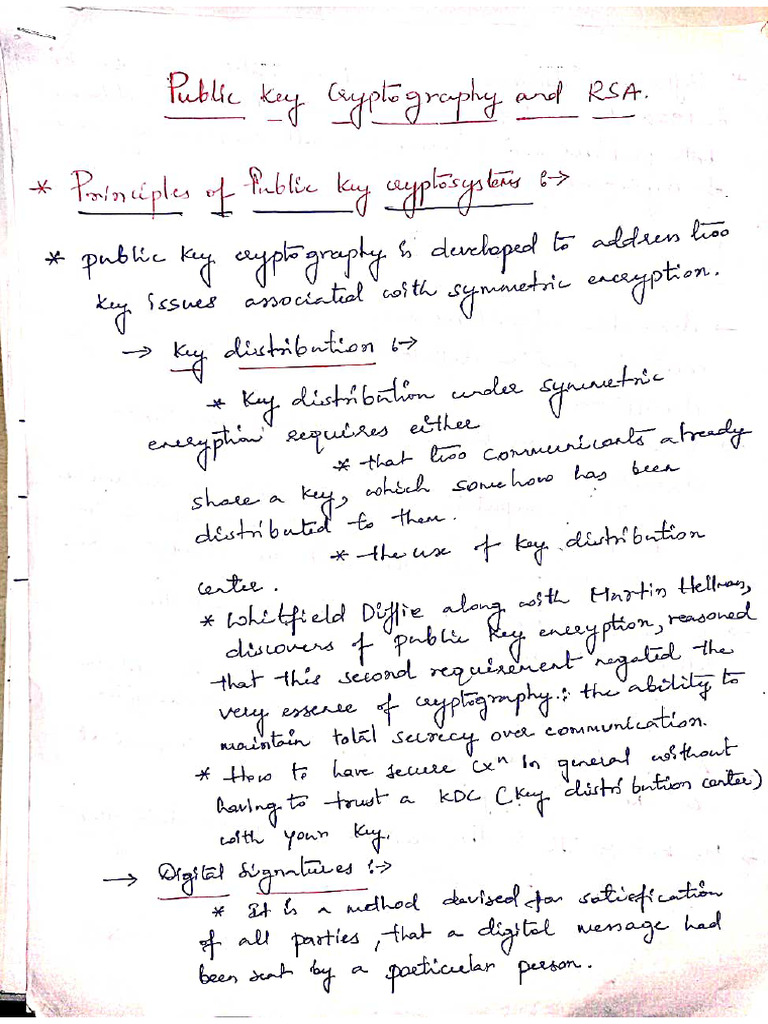 Public Key Cryptography and RSA.
* Principles of Public key cryptosystems :->
* public key cryptography is developed to address two
key issues associated with symmetric encryption.
-> Key distribution :->
* Key distribution under symmetric
encryption requires either
* that two communicants already
share a key, which somehow has been
distributed to them.
* the use of key distribution
center.
* Whitfield Diffie along with Martin Hellman,
discovers of public key encryption, reasoned
that this second requirement negated the
very essence of cryptography : the ability to
maintain total secrecy over communication.
* How to have secure cxⁿ in general without
having to trust a KDC (Key distribution center)
with your key.
-> Digital Signatures :->
* It is a method devised for satisfication
of all parties, that a digital message had
been sent by a particular person.